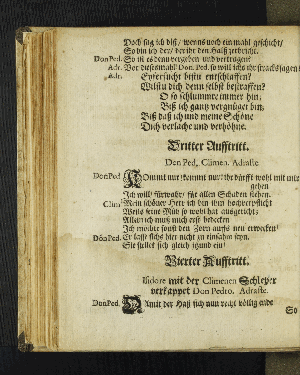 Doch sag ich diß / wenns noch einmahl geschicht /
So bin ich der / der ihr den Halß zerbricht.
Don Ped. So ist es denn verlohren und vertragen?
Adr. Vor diesesmahl Don. Ped. so will ichs ihr
Adr. Eyfersucht bistu entschlaffen?
Wilstu dich denn selbst bestraffen?
O so schlummre immer hin /
Biß ich gantz vergnüget bin /
Biß daß ich und meine Schöne
Dich verlache und verhöhne.
Dritter Aufftritt.
Don Ped, Climen. Adraste.
Don Ped Kommt nur kommt nur ihr dürfft wohl mit mir
gehen
Ich will fürwahr für allen Schaden stehen.
Clim Mein schöner Herr ich bin ihm hochverpflicht
Weils seine Müh so wohl hat ausgericht;
Allein ich muß mich erst bedecken
Ich möchte sonst den Zorn auffs neu erwecken
Don Ped. Er lasse sichs hier nicht zu einsahm seyn,
Sie stellet sich gleich itzund ein!
Vierter Aufftritt.
Isidore mit der Climenen Schleyer
verkappet Don Pedro. Adraste.
Don Ped. Damit der Haß sich nun recht völlig ende
So